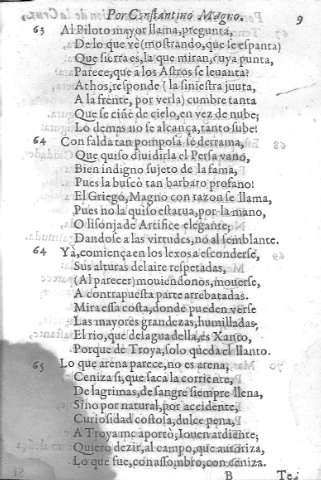 Por Constantino Magno. 9
63 Al Piloto mayor llama, pregunta,
De lo que vè (mostrando, que se espanta)
Que sierra es, la que miran, cuya punta,
Parece, que a los Astros se leuanta?
Athos, responde (la siniestra juuta,
A la frente, por verla) cumbre tanta
Que se ciñe de cielo, en vez de nube;
Lo demas no se alcança, tanto sube!
64 Con falda tan pomposa se derrama,
Que quiso diuidirla el Persa vano,
Bien indigno sujeto de la fama,
Pues la buscò tan barbaro profano!
El Griego, Magno con razon se llama,
Pues no la quiso estatua, por la mano,
O lisonja de Artifice elegante;
Dandose a las virtudes, no al semblante.
64 Yà, comiença en los lexos a esconderse,
Sus alturas del aire respetadas,
(Al parecer) mouiendonos, mouerse,
A contrapuesta parte arrebatadas.
Mira essa costa, donde pueden verse
Las mayores grandezas, humilladas,
El rio, que de lagua della, es Xanto,
Porque de Troya, solo queda el llanto.
65 Lo que arena parece, no es arena,
Ceniza si, que saca la corriente,
De lagrimas, de sangre siempre llena,
Sino por natural, por accidente,
Curiosidad costosa, dulce pena,
A Troya me aportò, Iouen ardiente;
Quiero dezir, al campo, que autoriza,
Lo que fue, con assombro, con ceniza.
B Te-